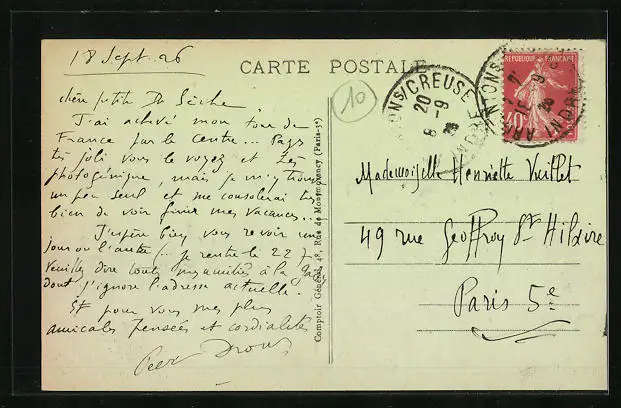 18 Sept. 26
CARTE POSTALE
10
chère petite
J'ai achevé mon tour de
France par le centre... Pays
très joli vous le voyez et très
photogénique, mais je m'y trouve
un peu seul et me consolerai très
bien de voir finir mes vacances...
J'espère bien vous revoir un
jour ou l'autre... je rentre le 22
Veuillez dire toutes mes amitiés à la
dont j'ignore l'adresse actuelle.
Et pour vous mes plus
amicales pensées et cordialités
Comptoir Général, 48, Rue de Montmorency (Paris-3e)
S/CREUSE
20
8 -9
26
INDRE
REPUBLIQUE FRANÇAISE
40c
INDRE
Mademoiselle Henriette Vuillet
49 rue Geoffroy St Hilaire
Paris 5e